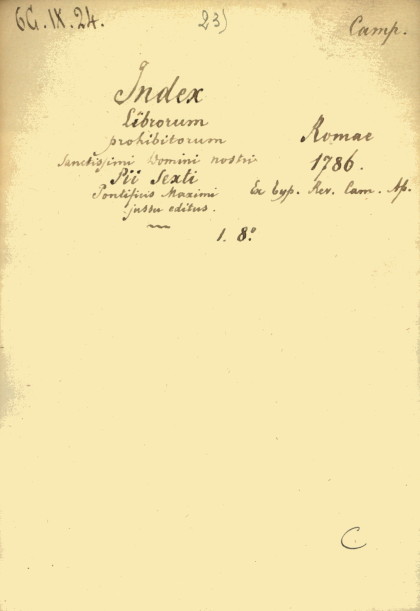 6G.IX.24.
23)
Camp.
Index
Librorum
prohibitorum
Sanctissimi Domini nostri
Pii Sexti
Pontificis Maximi
jussu editus.
Romae
1786.
Ex typ. Rev. Cam. Ap.
1. 8.º
C